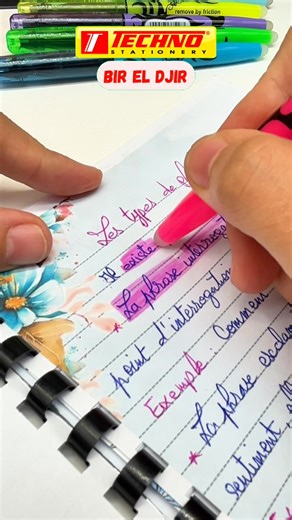 remove by friction
TECHNO
STATIONERY
BIR EL DJIR
Les types de
Il existe
* La phrase interroga
point d'interrogation
Exemple : Comment
* La phrase exclam
sentiment,